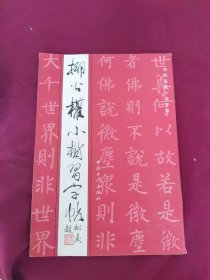 何以故若是
者佛則不說是微
何佛說微塵衆則非
柳公權小楷習字帖
大千世界則非世界